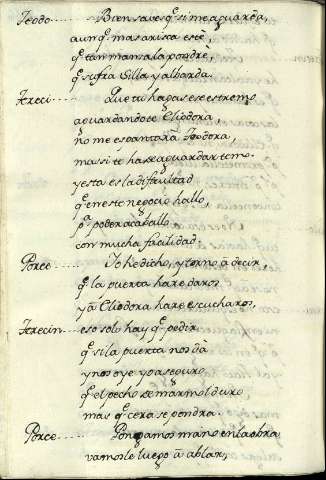 Teodo..... Bien saves q̃ si me aguarda,
aunq̃ mas arisca estè,
q̃ tan mansa la pondrè,
q̃ sufra silla y alharda.
Tereci..... Que tu hagas ese estremo
aguardandote Cliodora,
no me espantarà Teodora,
mas si te ha de aguardar temo.
y esta es la dificultad
q̃ en este negocio hallo,
pª poder acaballo
con mucha facilidad.
Porce..... Io he dicho, y torno à decir
q̃ la puerta harè daros
y à Cliodora harè escucharos,
Terecin.... eso solo hay q̃ pedir
q̃ si la puerta nos dà
y nos oye yo aseguro,
q̃ el pecho de marmol duro
mas q̃ cera se pondra.
Porce..... Pongamos mano en la obra
vamosle luego à ablar,